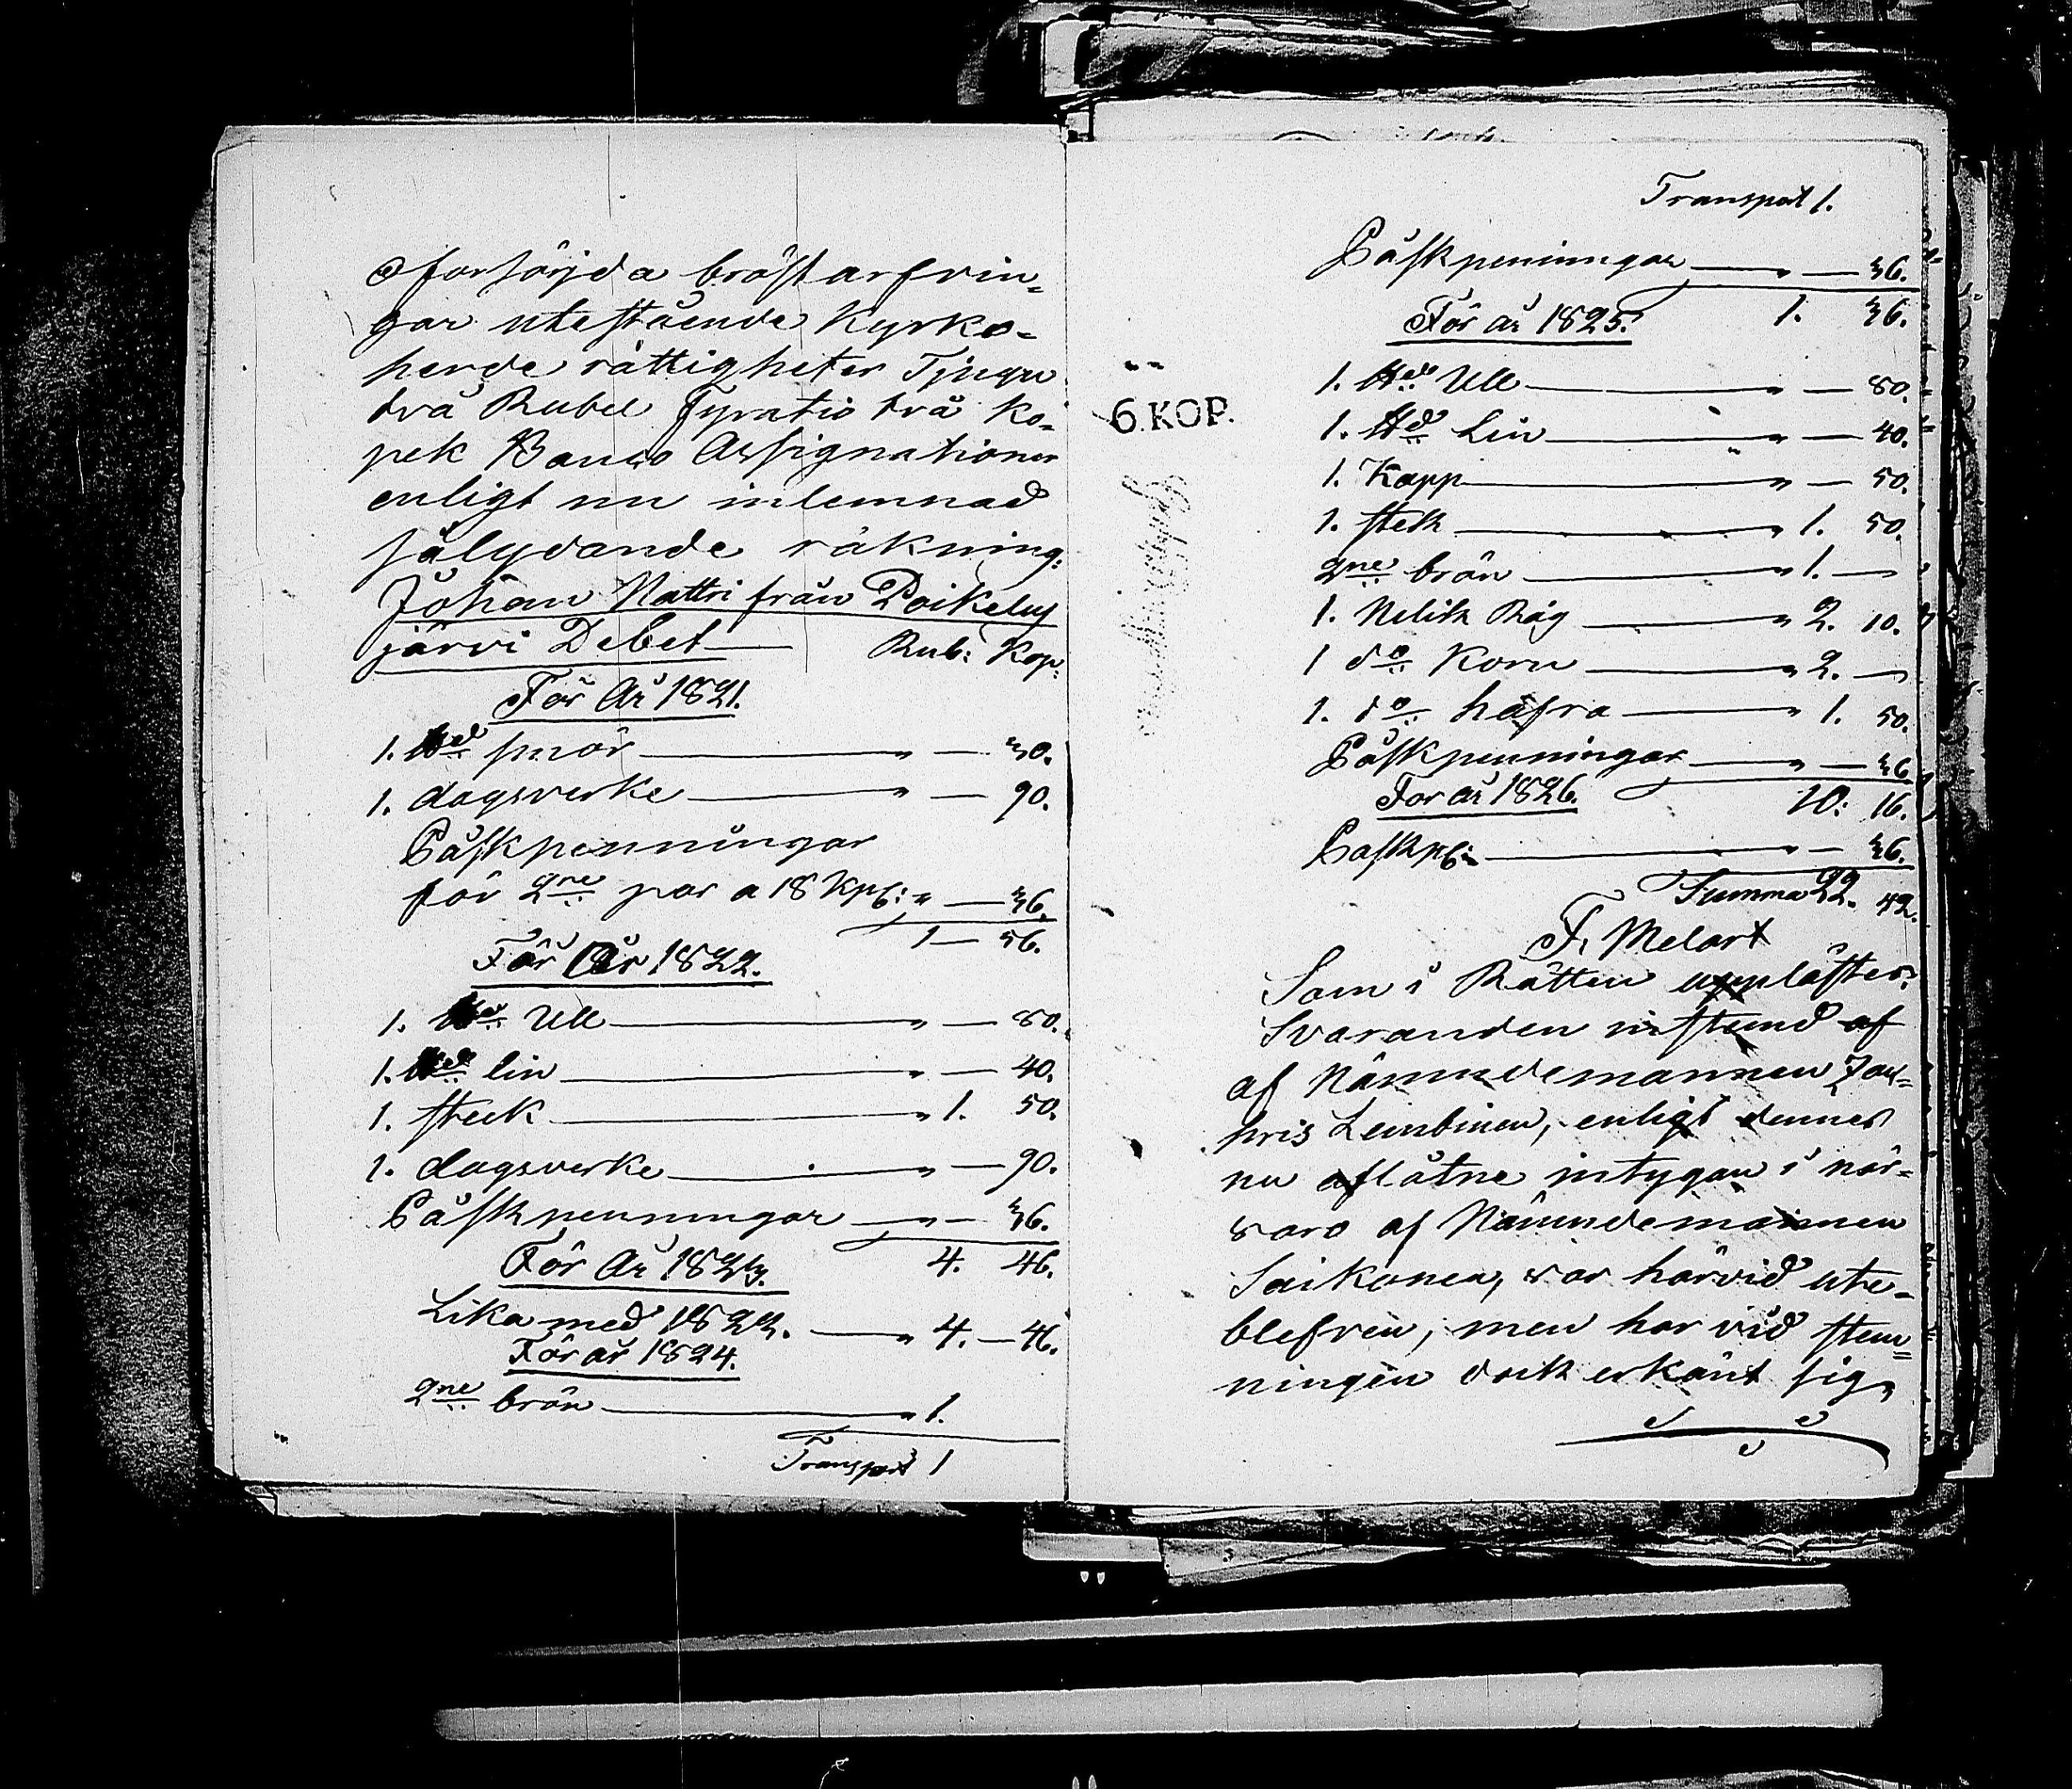 oförsörjda bröstarfvin-
gar utestående Kyrko-
herde rättigheter Tjugu
två Rubel Fyratio två Ko-
pek Banco Assignationer
enligt nu inlemnad
sålydande räkning:
Johan Nattri från Poikelys
järvi Debet — Rub: Kop:
För År 1821.
1. ℔d smör — „ — 30.
1. dagsverke — „ — 90.
Påskpenningar
för 2ne par a 18 Kps: „ — 36.
1 — 56.
För År 1822.
1. ℔d Ull — „ — 80.
1. ℔d lin — „ — 40.
1. steek — „ 1. 50.
1. dagsverke — „ — 90.
Påskpenningar — „ — 36.
För År 1823. 4. 46.
Lika med 1822. — „ 4. — 46.
För år 1824.
2ne brön — „ 1.
Transport 1
Transport 1.
Påskpeninngar — „ — 36.
För år 1825. 1. 36.
1. ℔d Ull — „ — 80.
1. ℔d Lin — „ — 40.
1. Kapp — „ — 50.
1. stek — „ 1. 50.
2ne brön — „ 1. —
1. Nelik Råg — „ 2. 10.
1 do Korn — „ 2. —
1. do hafra — „ 1. 50.
Påskpenningar — „ — 36
För år 1826. 10: 16.
Påskps: — „ — 36.
Summa 22. 42.
F. Melart
Som i Rätten upplästes.
Svaranden instemd af
af Nämndemannen Jau-
pris Leinbinen, enligt dennes
nu aflåtne intygan i när-
varo af Nämndemannen
Saikonen, var härvid ute-
blefven, men har vid stem-
ningen dock erkänt sig
6. KOP.